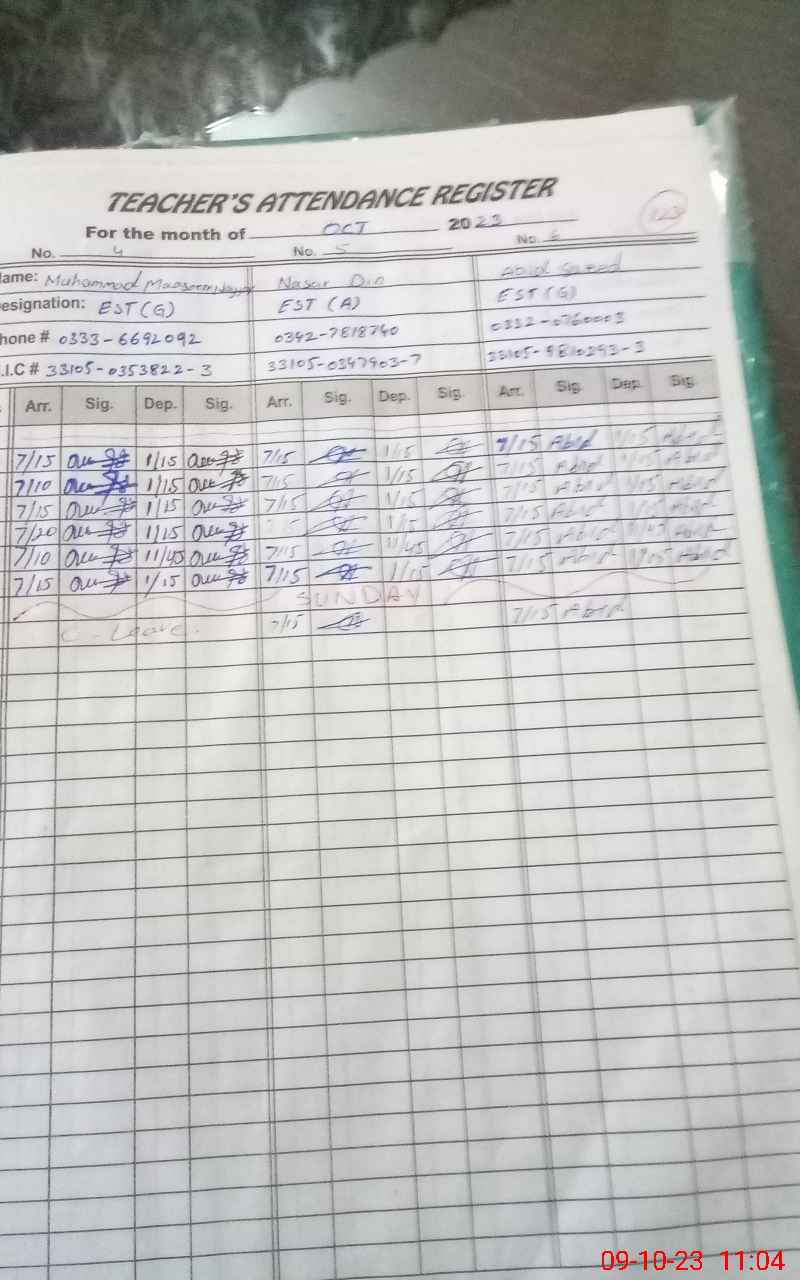 TEACHER'S ATTENDANCE REGISTER
123
For the month of OCT 2023
No. 4 No. 5 No. 6
ame: Muhammad Nasar Din Abid Saeed
esignation: EST (G) EST (A) EST (G)
hone # 0333-6692092 0342-7818740 0332-0760003
.I.C # 33105-0353822-3 33105-0347903-7 33105-9810293-3
Arr. Sig. Dep. Sig. Arr. Sig. Dep. Sig. Arr. Sig. Dep. Sig.
7/15 1/15 7/15 1/15 7/15 Abid 1/15 Abid
7/10 1/15 7/15 1/15 7/15 Abid 1/15 Abid
7/15 1/15 7/15 1/15 7/15 Abid 1/15 Abid
7/20 1/15 1/15 7/15 Abid 1/15 Abid
7/10 11/45 7/15 11/45 7/15 Abid 11/45 Abid
7/15 1/15 7/15 1/15 7/15 Abid 1/15 Abid
SUNDAY
C- Leave. 7/15 7/15 Abid
09-10-23 11:04